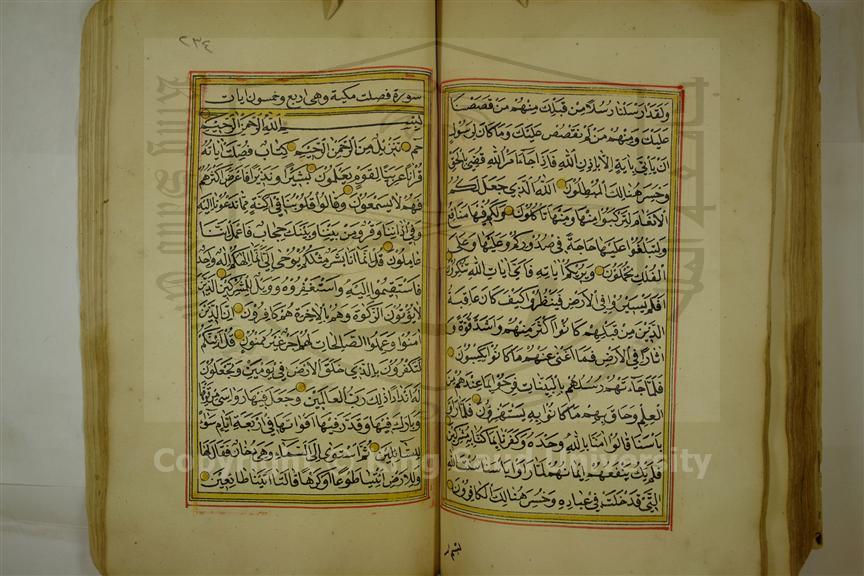 ولقد ارسلنا رسلا من قبلك منهم من قصصنا
عليك ومنهم من لم نقصص عليك وما كان لرسول
ان ياتي باية الا باذن الله فاذا جاء امر الله قضي بالحق
وخسر هنالك المبطلون الله الذي جعل لكم
الانعام لتركبوا منها ومنها تاكلون ولكم فيها منافع
ولتبلغوا عليها حاجة في صدوركم وعليها وعلى
الفلك تحملون ويريكم اياته فاي ايات الله تنكرون
افلم يسيروا في الارض فينظروا كيف كان عاقبة
الذين من قبلهم كانوا اكثر منهم واشد قوة و
اثارا في الارض فما اغنى عنهم ما كانوا يكسبون
فلما جاءتهم رسلهم بالبينات فرحوا بما عندهم من
العلم وحاق بهم ما كانوا به يستهزؤن فلما راوا
باسنا قالوا امنا بالله وحده وكفرنا بما كنا به مشركين
فلم يك ينفعهم ايمانهم لما راوا باسنا
التي قد خلت في عباده وخسر هنالك الكافرون
٢٣٤
سورة فصلت مكية وهي اربع وخمسون ايات
بسم الله الرحمن الرحيم
حم تنزيل من الرحمن الرحيم كتاب فصلت اياته
قرانا عربيا لقوم يعلمون بشيرا ونذيرا فاعرض اكثرهم
فهم لا يسمعون وقالوا قلوبنا في اكنة مما تدعونا اليه
وفي اذاننا وقر ومن بيننا وبينك حجاب فاعمل اننا
عاملون قل انما انا بشر مثلكم يوحى الي انما الهكم اله واحد
فاستقيموا اليه واستغفروه وويل للمشركين الذين
لا يؤتون الزكوة وهم بالاخرة هم كافرون ان الذين
امنوا وعملوا الصالحات لهم اجر غير ممنون قل ائنكم
لتكفرون بالذي خلق الارض في يومين وتجعلون
له اندادا ذلك رب العالمين وجعل فيها رواسي من فوقها
وبارك فيها وقدر فيها اقواتها في اربعة ايام سواء
للسائلين ثم استوى الى السماء وهي دخان فقال لها
وللارض ائتيا طوعا او كرها قالتا اتينا طائعين
King Saud University
Copyright © King Saud University